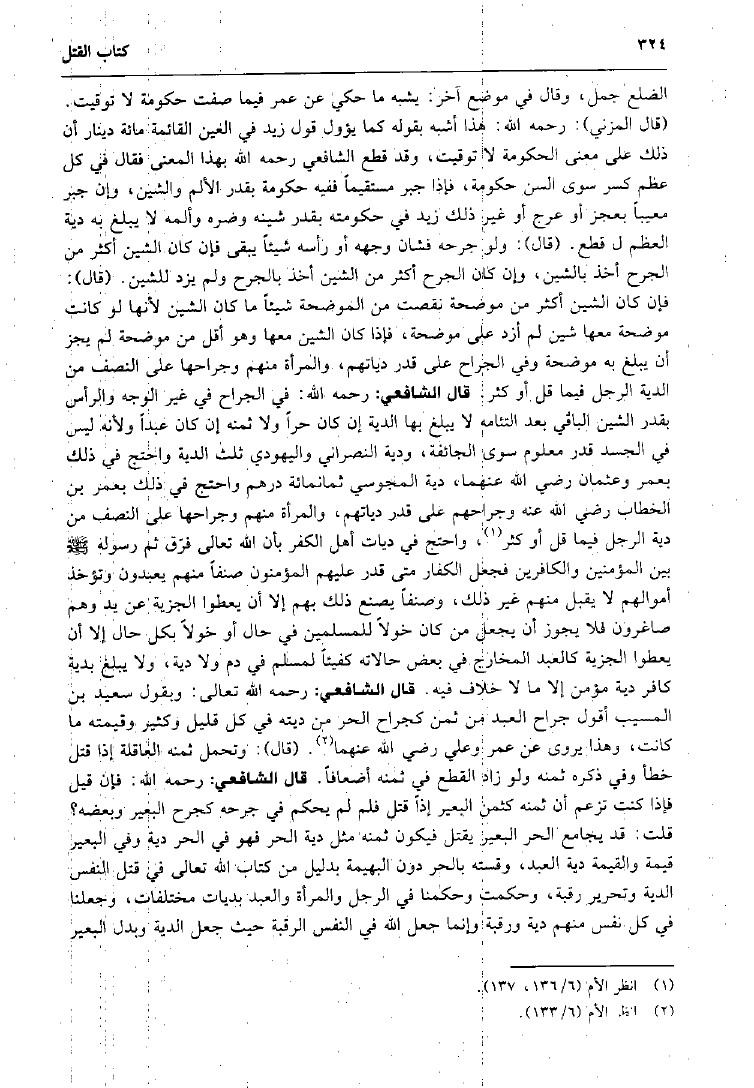 ٣٢٤
كتاب القتل
الضلع جمل، وقال في موضع آخر: يشبه ما حكي عن عمر فيما صفت حكومة لا توقيت.
(قال المزني): رحمه الله: هذا أشبه بقوله كما يؤول قول زيد في العين القائمة مائة دينار أن
ذلك على معنى الحكومة لا توقيت، وقد قطع الشافعي رحمه الله بهذا المعنى فقال في كل
عظم كسر سوى السن حكومة، فإذا جبر مستقيماً ففيه حكومة بقدر الألم والشين، وإن جبر
معيباً بعجز أو عرج أو غير ذلك زيد في حكومته بقدر شينه وضره وألمه لا يبلغ به دية
العظم ل قطع. (قال): ولو جرحه فشان وجهه أو رأسه شيئاً يبقى فإن كان الشين أكثر من
الجرح أخذ بالشين، وإن كان الجرح أكثر من الشين أخذ بالجرح ولم يزد للشين. (قال):
فإن كان الشين أكثر من موضحة نقصت من الموضحة شيئاً ما كان الشين لأنها لو كانت
موضحة معها شين لم أزد على موضحة، فإذا كان الشين معها وهو أقل من موضحة لم يجز
أن يبلغ به موضحة وفي الجراح على قدر دياتهم، والمرأة منهم وجراحها على النصف من
الدية الرجل فيما قل أو كثر. قال الشافعي: رحمه الله: في الجراح في غير الوجه والرأس
بقدر الشين الباقي بعد التئامه لا يبلغ بها الدية إن كان حراً ولا ثمنه إن كان عبداً ولأنه ليس
في الجسد قدر معلوم سوى الجائفة، ودية النصراني واليهودي ثلث الدية واحتج في ذلك
بعمر وعثمان رضي الله عنهما، دية المجوسي ثمانمائة درهم واحتج في ذلك بعمر بن
الخطاب رضي الله عنه وجراحهم على قدر دياتهم، والمرأة منهم وجراحها على النصف من
دية الرجل فيما قل أو كثر(١)، واحتج في ديات أهل الكفر بأن الله تعالى فرّق ثم رسوله ﷺ
بين المؤمنين والكافرين فجعل الكفار متى قدر عليهم المؤمنون صنفاً منهم يعبدون وتؤخذ
أموالهم لا يقبل منهم غير ذلك، وصنفاً يصنع ذلك بهم إلا أن يعطوا الجزية عن يد وهم
صاغرون فلا يجوز أن يجعل من كان خولاً للمسلمين في حال أو خولاً بكل حال إلا أن
يعطوا الجزية كالعبد المخارج في بعض حالاته كفيئاً لمسلم في دم ولا دية، ولا يبلغ بدية
كافر دية مؤمن إلا ما لا خلاف فيه. قال الشافعي: رحمه الله تعالى: وبقول سعيد بن
المسيب أقول جراح العبد من ثمن كجراح الحر من ديته في كل قليل وكثير وقيمته ما
كانت، وهذا يروى عن عمر وعلي رضي الله عنهما(٢). (قال): وتحمل ثمنه العاقلة إذا قتل
خطأ وفي ذكره ثمنه ولو زاد القطع في ثمنه أضعافاً. قال الشافعي: رحمه الله: فإن قيل
فإذا كنت تزعم أن ثمنه كثمن البعير إذاً قتل فلم لم يحكم في جرحه كجرح البعير وبعضه؟
قلت: قد يجامع الحر البعير يقتل فيكون ثمنه مثل دية الحر فهو في الحر دية وفي البعير
قيمة والقيمة دية العبد، وقسته بالحر دون البهيمة بدليل من كتاب الله تعالى في قتل النفس
الدية وتحرير رقبة، وحكمت وحكمنا في الرجل والمرأة والعبد بديات مختلفات، وجعلنا
في كل نفس منهم دية ورقبة وإنما جعل الله في النفس الرقبة حيث جعل الدية وبدل البعير
(١) انظر الأم (٦/ ١٣٦، ١٣٧).
(٢) انظر الأم (٦/ ١٣٣).